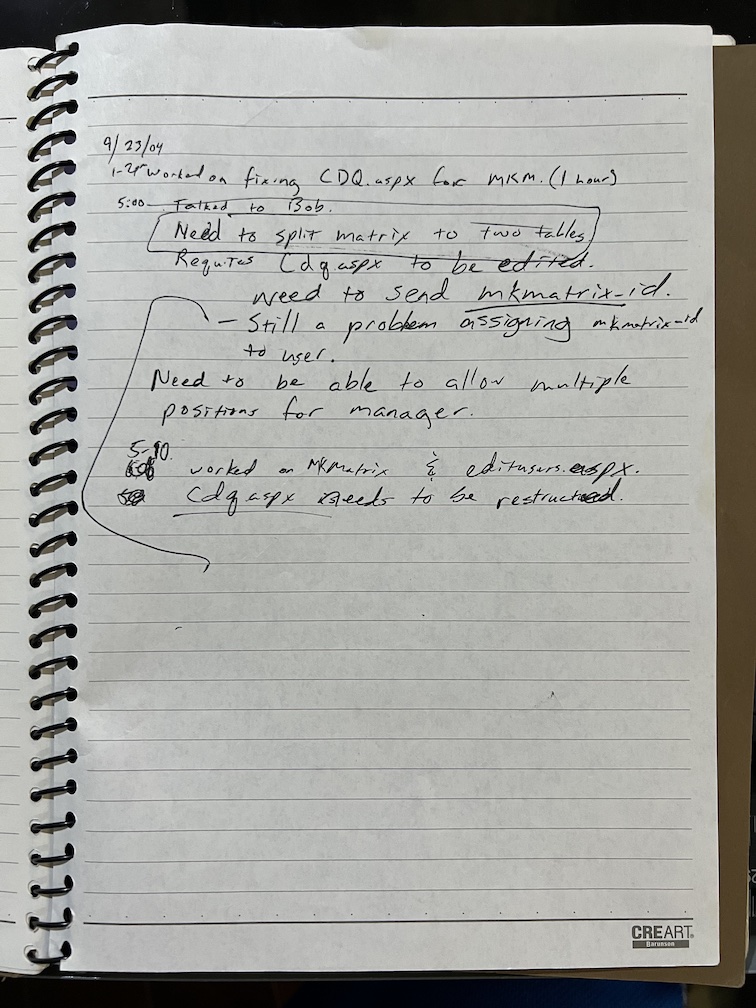 9/23/04
worked on fixing CDQ.aspx for MKM. (1 hour)
5:00 Talked to Bob.
Need to split matrix to two tables
Requires Cdq.aspx to be edited.
need to send mkmatrix-id.
- Still a problem assigning mkmatrix-id
to user.
Need to be able to allow multiple
positions for manager.
5-10.
worked on MKMatrix & editusers.aspx.
Cdq.aspx needs to be restructed.
CREART
Baranson